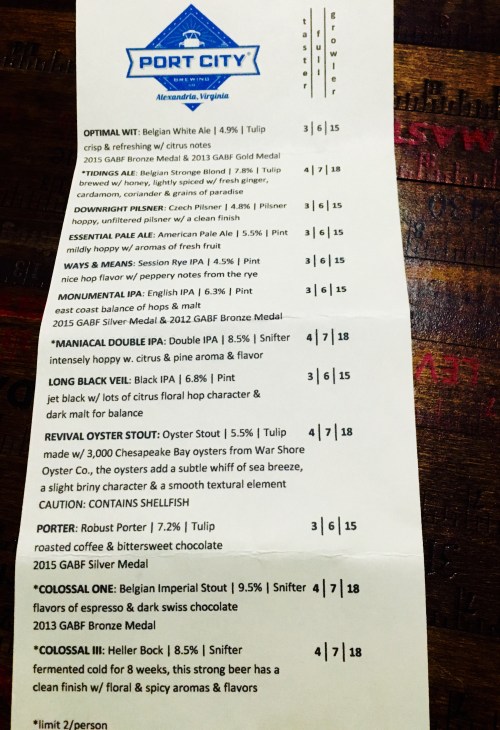 PORT CITY®
BREWING
Alexandria, Virginia
taster | full | growler
OPTIMAL WIT: Belgian White Ale | 4.9% | Tulip 3 | 6 | 15
crisp & refreshing w/ citrus notes
2015 GABF Bronze Medal & 2013 GABF Gold Medal
*TIDINGS ALE: Belgian Stronge Blond | 7.8% | Tulip 4 | 7 | 18
brewed w/ honey, lightly spiced w/ fresh ginger,
cardamom, coriander & grains of paradise
DOWNRIGHT PILSNER: Czech Pilsner | 4.8% | Pilsner 3 | 6 | 15
hoppy, unfiltered pilsner w/ a clean finish
ESSENTIAL PALE ALE: American Pale Ale | 5.5% | Pint 3 | 6 | 15
mildly hoppy w/ aromas of fresh fruit
WAYS & MEANS: Session Rye IPA | 4.5% | Pint 3 | 6 | 15
nice hop flavor w/ peppery notes from the rye
MONUMENTAL IPA: English IPA | 6.3% | Pint 3 | 6 | 15
east coast balance of hops & malt
2015 GABF Silver Medal & 2012 GABF Bronze Medal
*MANIACAL DOUBLE IPA: Double IPA | 8.5% | Snifter 4 | 7 | 18
intensely hoppy w. citrus & pine aroma & flavor
LONG BLACK VEIL: Black IPA | 6.8% | Pint 3 | 6 | 15
jet black w/ lots of citrus floral hop character &
dark malt for balance
REVIVAL OYSTER STOUT: Oyster Stout | 5.5% | Tulip 4 | 7 | 18
made w/ 3,000 Chesapeake Bay oysters from War Shore
Oyster Co., the oysters add a subtle whiff of sea breeze,
a slight briny character & a smooth textural element
CAUTION: CONTAINS SHELLFISH
PORTER: Robust Porter | 7.2% | Tulip 3 | 6 | 15
roasted coffee & bittersweet chocolate
2015 GABF Silver Medal
*COLOSSAL ONE: Belgian Imperial Stout | 9.5% | Snifter 4 | 7 | 18
flavors of espresso & dark swiss chocolate
2013 GABF Bronze Medal
*COLOSSAL III: Heller Bock | 8.5% | Snifter 4 | 7 | 18
fermented cold for 8 weeks, this strong beer has a
clean finish w/ floral & spicy aromas & flavors
*limit 2/person
MAST